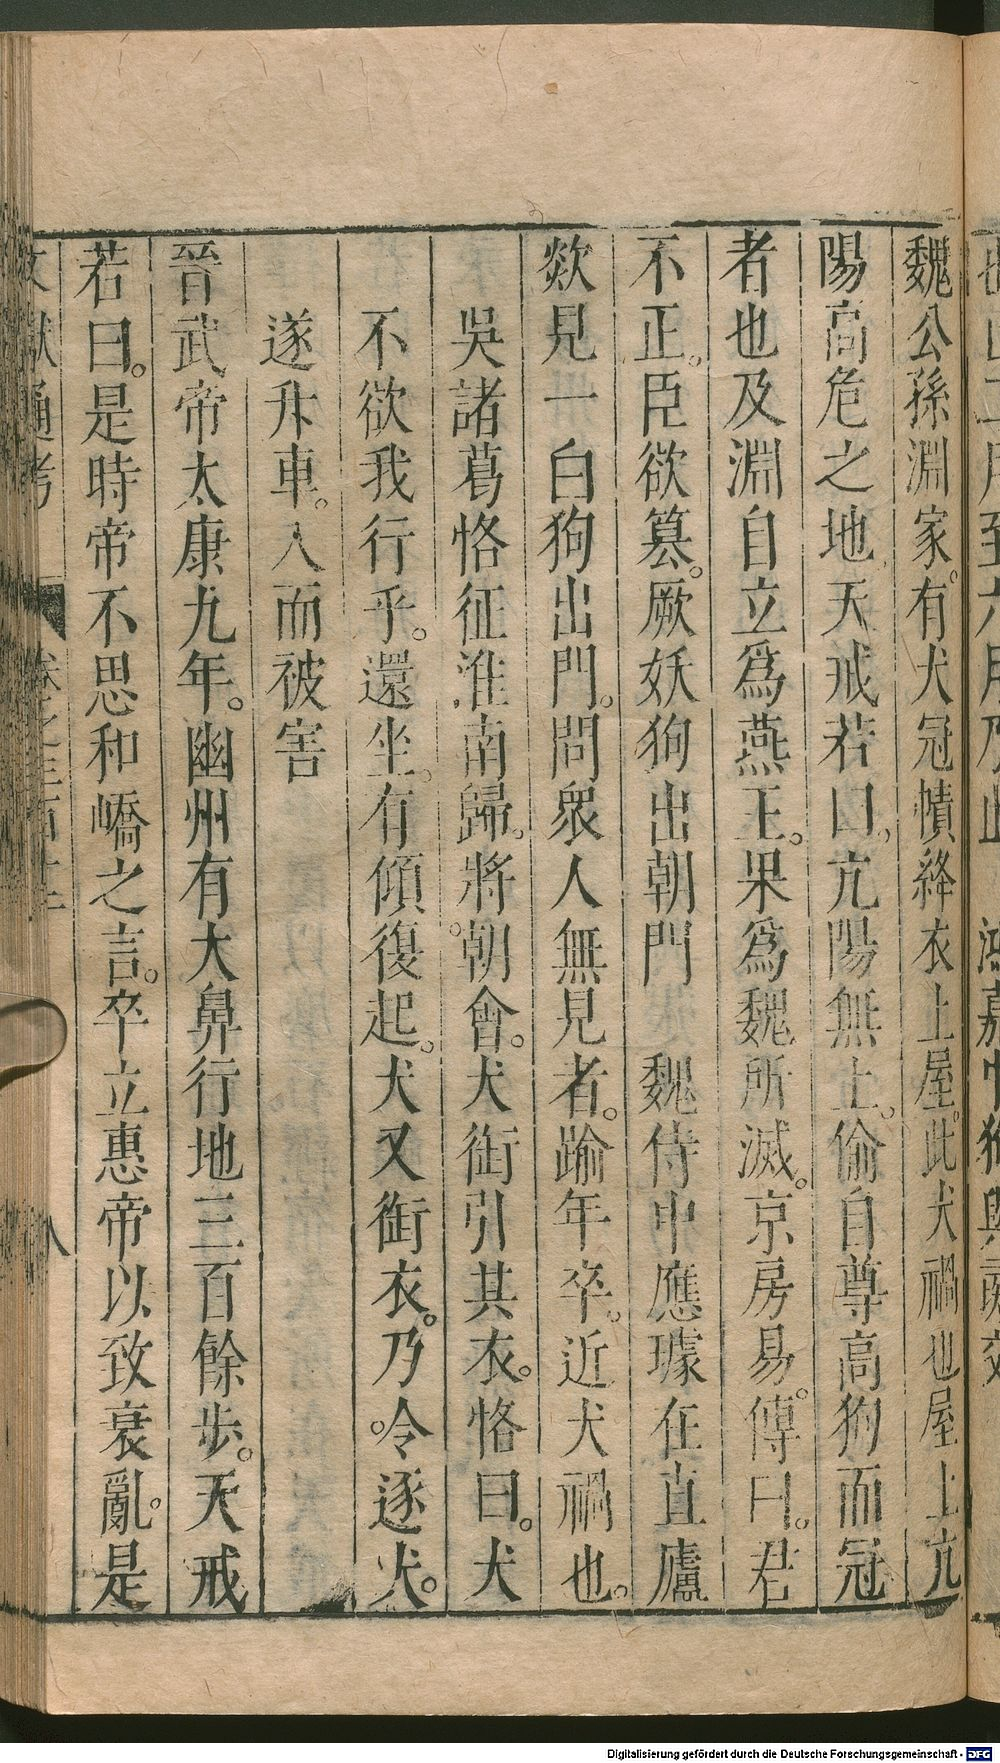 魏公孫淵家。有犬冠幘絳衣上屋。此犬禍也屋上亢
陽高危之地天戒若曰。亢陽無上。偷自尊高狗而冠
者也及淵自立爲燕王。果爲魏所滅。京房易。傳曰。君
不正。臣欲簒。厥妖狗出朝門　魏侍中應璩在直廬
欻見一白狗出門。問衆人無見者。踰年卒。近犬禍也。
吳諸葛恪征淮南歸。將朝會。犬銜引其衣。恪曰。犬
不欲我行乎。還坐。有傾復起。犬又銜衣。乃令逐犬。
遂升車。入而被害
晉武帝太康九年。幽州有犬鼻行地三百餘步。天戒
若曰。是時帝不思和嶠之言。卒立惠帝以致衰亂。是
文獻通考
八
Digitalisierung gefördert durch die Deutsche Forschungsgemeinschaft - DFG